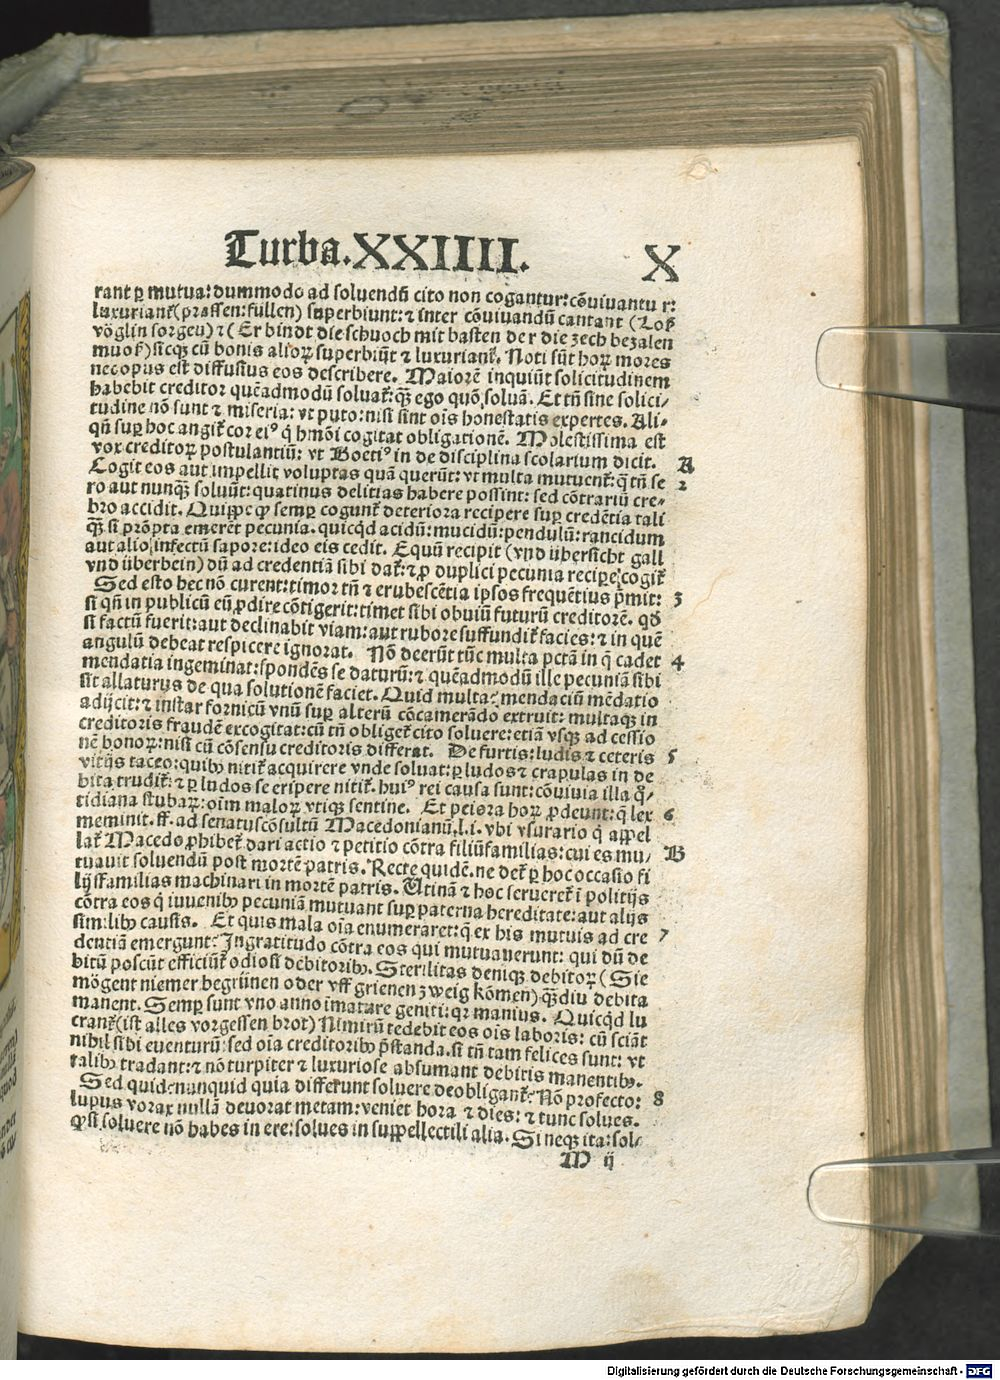 Turba.XXIIIII. X
rant ꝑ mutua: dummodo ad soluendū cito non cogantur: cōuiuantur:
luxurianť (prassen: füllen) superbiunt: ⁊ inter cōuiuandū cantant (Loß
vöglin sorgen) ⁊ (Er bindt die schuoch mit basten der die zech bezalen
muoß) sicqꝫ cū bonis alioꝝ superbiūt ⁊ luxurianť. Noti sūt hoꝝ mores
nec opus est diffusius eos describere. Maiorē inquiūt solicitudinem
habebit creditor quēadmodū soluať: qꝫ̄ ego quō soluā. Et tn̄ sine solici⸗
tudine nō sunt ⁊ miseria: vt puto: nisi sint oīs honestatis expertes. Ali⸗
qn̄ suꝑ hoc angiť cor eiꝰ q̇ hmōi cogitat obligationē. Molestissima est
vox creditoꝝ postulantiū: vt Boetiꝰ in de disciplina scolarium dicit. A
Cogit eos aut impellit voluptas quā querūt: vt multa mutuenť: q̄ tn̄ se 2
ro aut nunqꝫ̄ soluūt: quatinus delitias habere possint: sed cōtrariū cre⸗
bro accidit. Quippe ꝙ semꝑ cogunť deteriora recipere suꝑ credētia tali
qꝫ̄ si prōpta emerēt pecunia. quicqd acidū: mucidū: pendulū: rancidum
aut alio infectū sapore: ideo eis cedit. Equū recipit (vnd übersicht gall
vnd überbein) dū ad credentiā sibi dať: ⁊ ꝓ duplici pecunia recipe cogiť
Sed esto hec nō curent: timor tn̄ ⁊ erubescētia ipsos frequētius p̄mit: 3
si qn̄ in publicū eū ꝓdire cōtigerit: timet sibi obuiū futurū creditorē. qd̄
si factū fuerit: aut declinabit viam: aut rubore suffundiť facies: ⁊ in quē
angulū debeat respicere ignorat. Nō deerūt tūc multa pctā in q̄ cadet 4
mendatia ingeminat: spondēs se daturū: ⁊ quēadmodū ille pecuniā sibi
sit allaturus de qua solutionē faciet. Quid multa? mendaciū mēdatio
adijcit: ⁊ instar fornicū vnū suꝑ alterū cōcamerādo extruit: multaqꝫ in
creditoris fraudē excogitat: cū tn̄ obligeť cito soluere: etiā vsqꝫ ad cessio
nē bonoꝝ: nisi cū cōsensu creditoris differat. De furtis: ludis ⁊ ceteris 5
vitijs taceo: quibꝫ nitiť acquirere vnde soluat: ꝑ ludos ⁊ crapulas in de
bita trudiť: ⁊ ꝑ ludos se eripere nitiť. huiꝰ rei causa sunt: cōuiuia illa q̊⸗
tidiana stubaꝝ: oīm maloꝝ vtiqꝫ sentine. Et peiora hoꝝ ꝓdeunt: q̄ lex 6
meminit. ff. ad senatuscōsultū Macedonianū. l. i. vbi vsurario q̇ appel
lať Macedo ꝓhibeť dari actio ⁊ petitio cōtra filiūfamilias: cui es mu⸗ B
tuauit soluendū post mortē patris. Recte quidē. ne deť ꝑ hoc occasio fi
lijsfamilias machinari in mortē patris. Utinā ⁊ hoc serueretʼ ī politijs
cōtra eos q̇ iuuenibꝫ pecuniā mutuant suꝑ paterna hereditate: aut alijs
similibꝫ causis. Et quis mala oīa enumeraret: q̄ ex his mutuis ad cre 7
dentiā emergunt? Ingratitudo cōtra eos qui mutuauerunt: qui dū de
bitū poscūt efficiūť odiosi debitoribꝫ. Sterilitas deniqꝫ debitoꝝ (Sie
mögent niemer begrünen oder vff grienen zweig kōmen) qꝫ̄diu debita
manent. Semꝑ sunt vno anno īmature geniti: qr manius. Quicqd lu
cranť (ist alles vorgessen brot) Nimirū tedebit eos oīs laboris: cū sciāt
nihil sibi euenturū: sed oīa creditoribꝫ p̄standa. si tn̄ tam felices sunt: vt
talibꝫ tradant: ⁊ nō turpiter ⁊ luxuriose absumant debitis manentibꝫ.
Sed quid: nunquid quia differunt soluere deobliganť? Nō profecto: 8
lupus vorax nullā deuorat metam: veniet hora ⁊ dies: ⁊ tunc solues.
ꝙ si soluere nō habes in ere: solues in suppellectili alia. Si neqꝫ ita: sol⸗
M ij
Digitalisierung gefördert durch die Deutsche Forschungsgemeinschaft - DFG